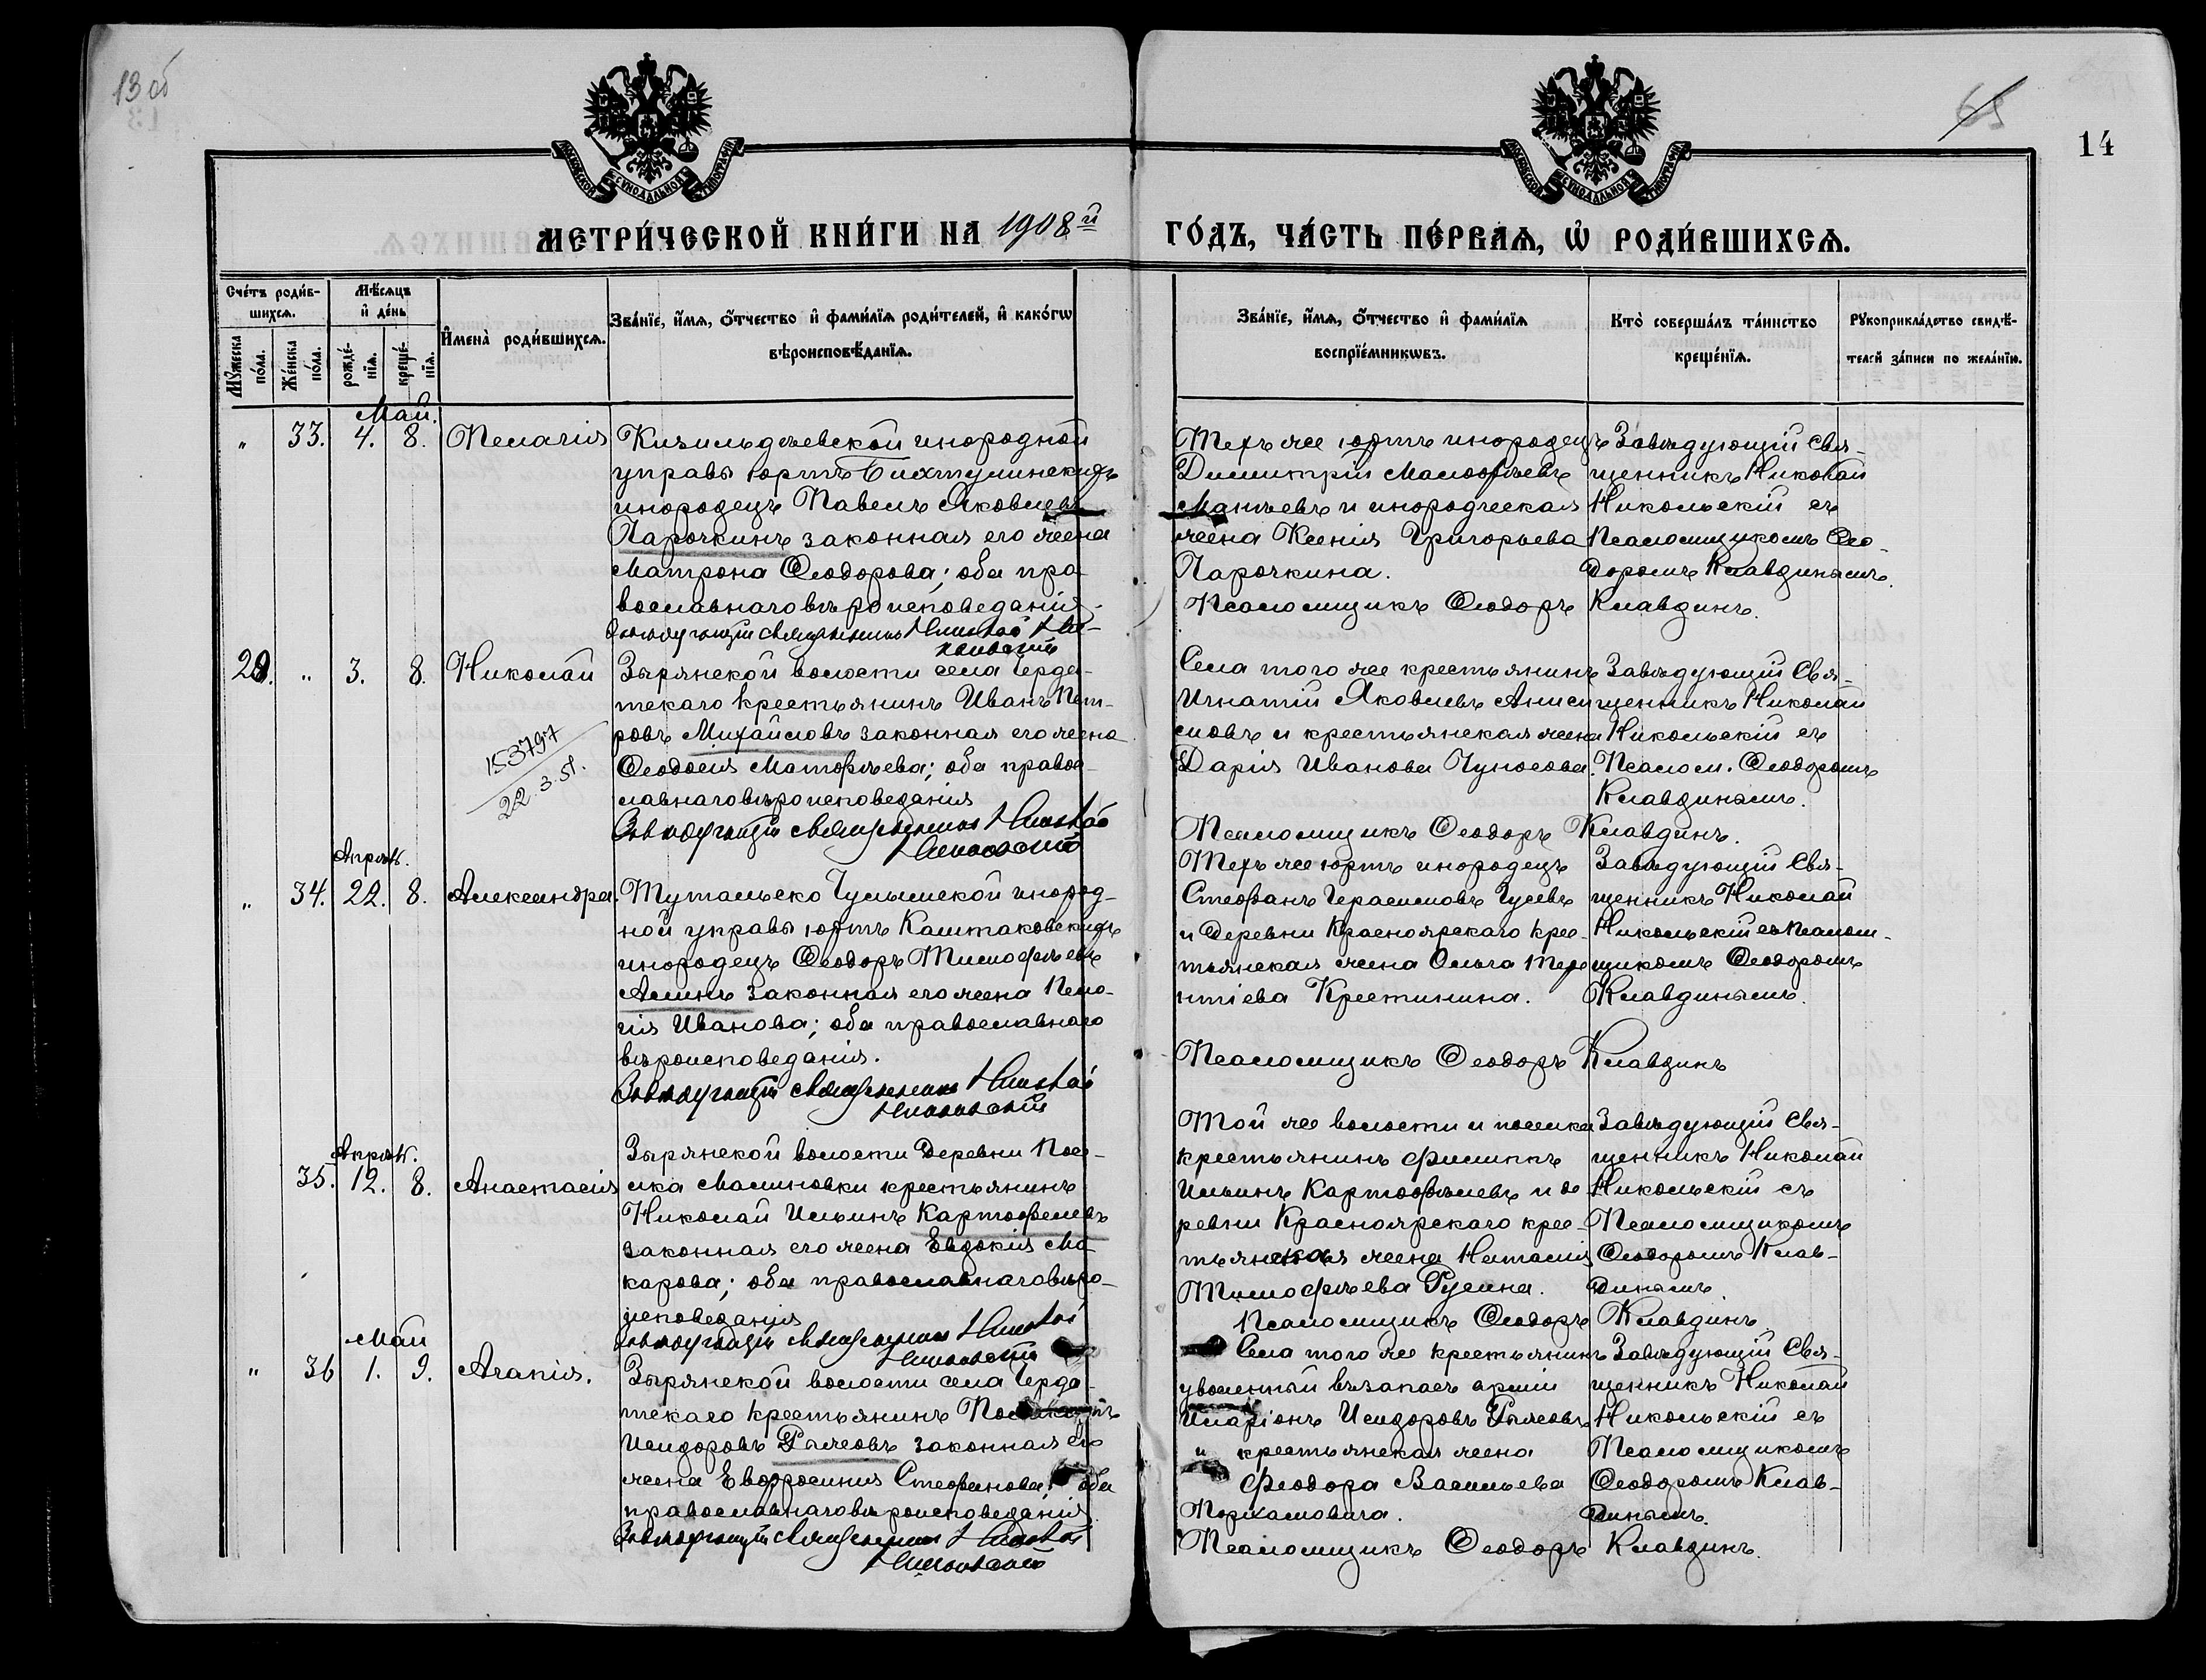 13 об
65
14
МОСКОВСКОЙ СѴНОДАЛЬНОЙ ТИПОГРАФІИ
МОСКОВСКОЙ СѴНОДАЛЬНОЙ ТИПОГРАФІИ
МЕТРИ́ЧЕСКОЙ КНИ́ГИ НА 1908й ГО́ДЪ, ЧА́СТЬ ПЕ́РВАѦ, Ѡ҆ РОДИ́ВШИХСѦ.
Сче́тъ роди́в-
шихсѧ.
Мѣ́сѧцъ
и҆ де́нь
Мꙋ́жеска
по́ла.
Же́нска
по́ла.
рожде́-
нїѧ.
креще́-
нїѧ.
И҆мена̀ роди́вшихсѧ.
Зва́нїе, и҆́мѧ, ѻ҆́тчество и҆ фами́лїѧ роди́телей, и҆ како́гѡ
вѣроисповѣ́данїѧ.
Зва́нїе, и҆́мѧ, ѻ҆́тчество и҆ фами́лїѧ
воспрїе́мникѡвъ.
Кто̀ соверша́лъ та́инство
креще́нїѧ.
Рꙋкоприкла́дство свидѣ́-
телей за́писи по жела́нїю.
Май.
" 33. 4. 8. Пелагія
Кизильдеевской инородной
управы юртъ Бихтулинскихъ
инородецъ Павелъ Яковлевъ
Парочкинъ законная его жена
Матрона Ѳеодорова; оба пра-
вославнаго вѣроисповеданія.
Завѣдующій священникъ Николай Ни-
кольскій
Техъ же юртъ инородецъ
Димитрій Малофѣевъ
Мантевъ и инородческая
жена Ксенія Григорьева
Парочкина.
Псаломщикъ Ѳеодоръ Клавдинъ.
Завѣдующій Свя-
щенникъ Николай
Никольскій съ
Псаломщикомъ Ѳео-
доромъ Клавдинымъ.
28. " 3. 8. Николай
153797
22.3.51.
Зырянской волости села Черда-
тскаго крестьянинъ Иванъ Пет-
ровъ Михайловъ законная его жена
Ѳеодосія Матофѣева; оба правос-
лавнаго вѣроисповеданія
Завѣдующій священникъ Николай
Никольскій
Села того же крестьянинъ
Игнатій Яковлевъ Аниси-
мовъ и крестьянская жена
Дарія Иванова Чуносова.
Псаломщикъ Ѳеодоръ Клавдинъ.
Завѣдующій Свя-
щенникъ Николай
Никольскій съ
Псалом. Ѳеодоромъ
Клавдинымъ.
Апрѣль.
" 34. 22. 8. Александра.
Тутальско Чулымской инород-
ной управы юртъ Каштаковскихъ
инородецъ Ѳеодоръ Тимофѣевъ
Аминъ законная его жена Пела-
гія Иванова; оба православнаго
вѣроисповеданія.
Завѣдующій священникъ Николай
Никольскій
Техъ же юртъ инородецъ
Стефанъ Герасимовъ Гусевъ
и Деревни Красноярскаго крес-
тьянская жена Ольга Тере-
нтіева Крестинина.
Псаломщикъ Ѳеодоръ Клавдинъ
Завѣдующій Свя-
щенникъ Николай
Никольскій съ Псалом-
щикомъ Ѳеодоромъ
Клавдинымъ.
Апрѣль.
35. 12. 8. Анастасія
Зырянской волости Деревни Посе-
лка Малиновки крестьянинъ
Николай Ильинъ Картофелевъ
законная его жена Евдокія Ма-
карова; оба православнаго вѣро-
исповеданія
Завѣдующій священникъ Николай
Никольскій
Той же волости и поселка
крестьянинъ Филиппъ
Ильинъ Картофѣлевъ и де-
ревни Красноярскаго крес-
тьянская жена Наталія
Тимофѣева Гусина.
Псаломщикъ Ѳеодоръ Клавдинъ
Завѣдующій Свя-
щенникъ Николай
Никольскій съ
Псаломщикомъ
Ѳеодоромъ Клав-
динымъ
Май
" 36 1. 9. Агапія.
Зырянской волости села Черда-
тскаго крестьянинъ
Исидоровъ Рыжовъ законная его
жена Евфросинія Стефанова; оба
православнаго вѣроисповеданія
Завѣдующій священникъ Николай
Никольскій
Села того же крестьянинъ
уволенный въ запасъ арміи
Иларіонъ Исидоровъ Рыжовъ
и крестьянская жена
Феодора Васильева
Порхамовича.
Псаломщикъ Ѳеодоръ Клавдинъ.
Завѣдующій Свя-
щенникъ Николай
Никольскій съ
Псаломщикомъ
Ѳеодоромъ Клав-
динымъ.